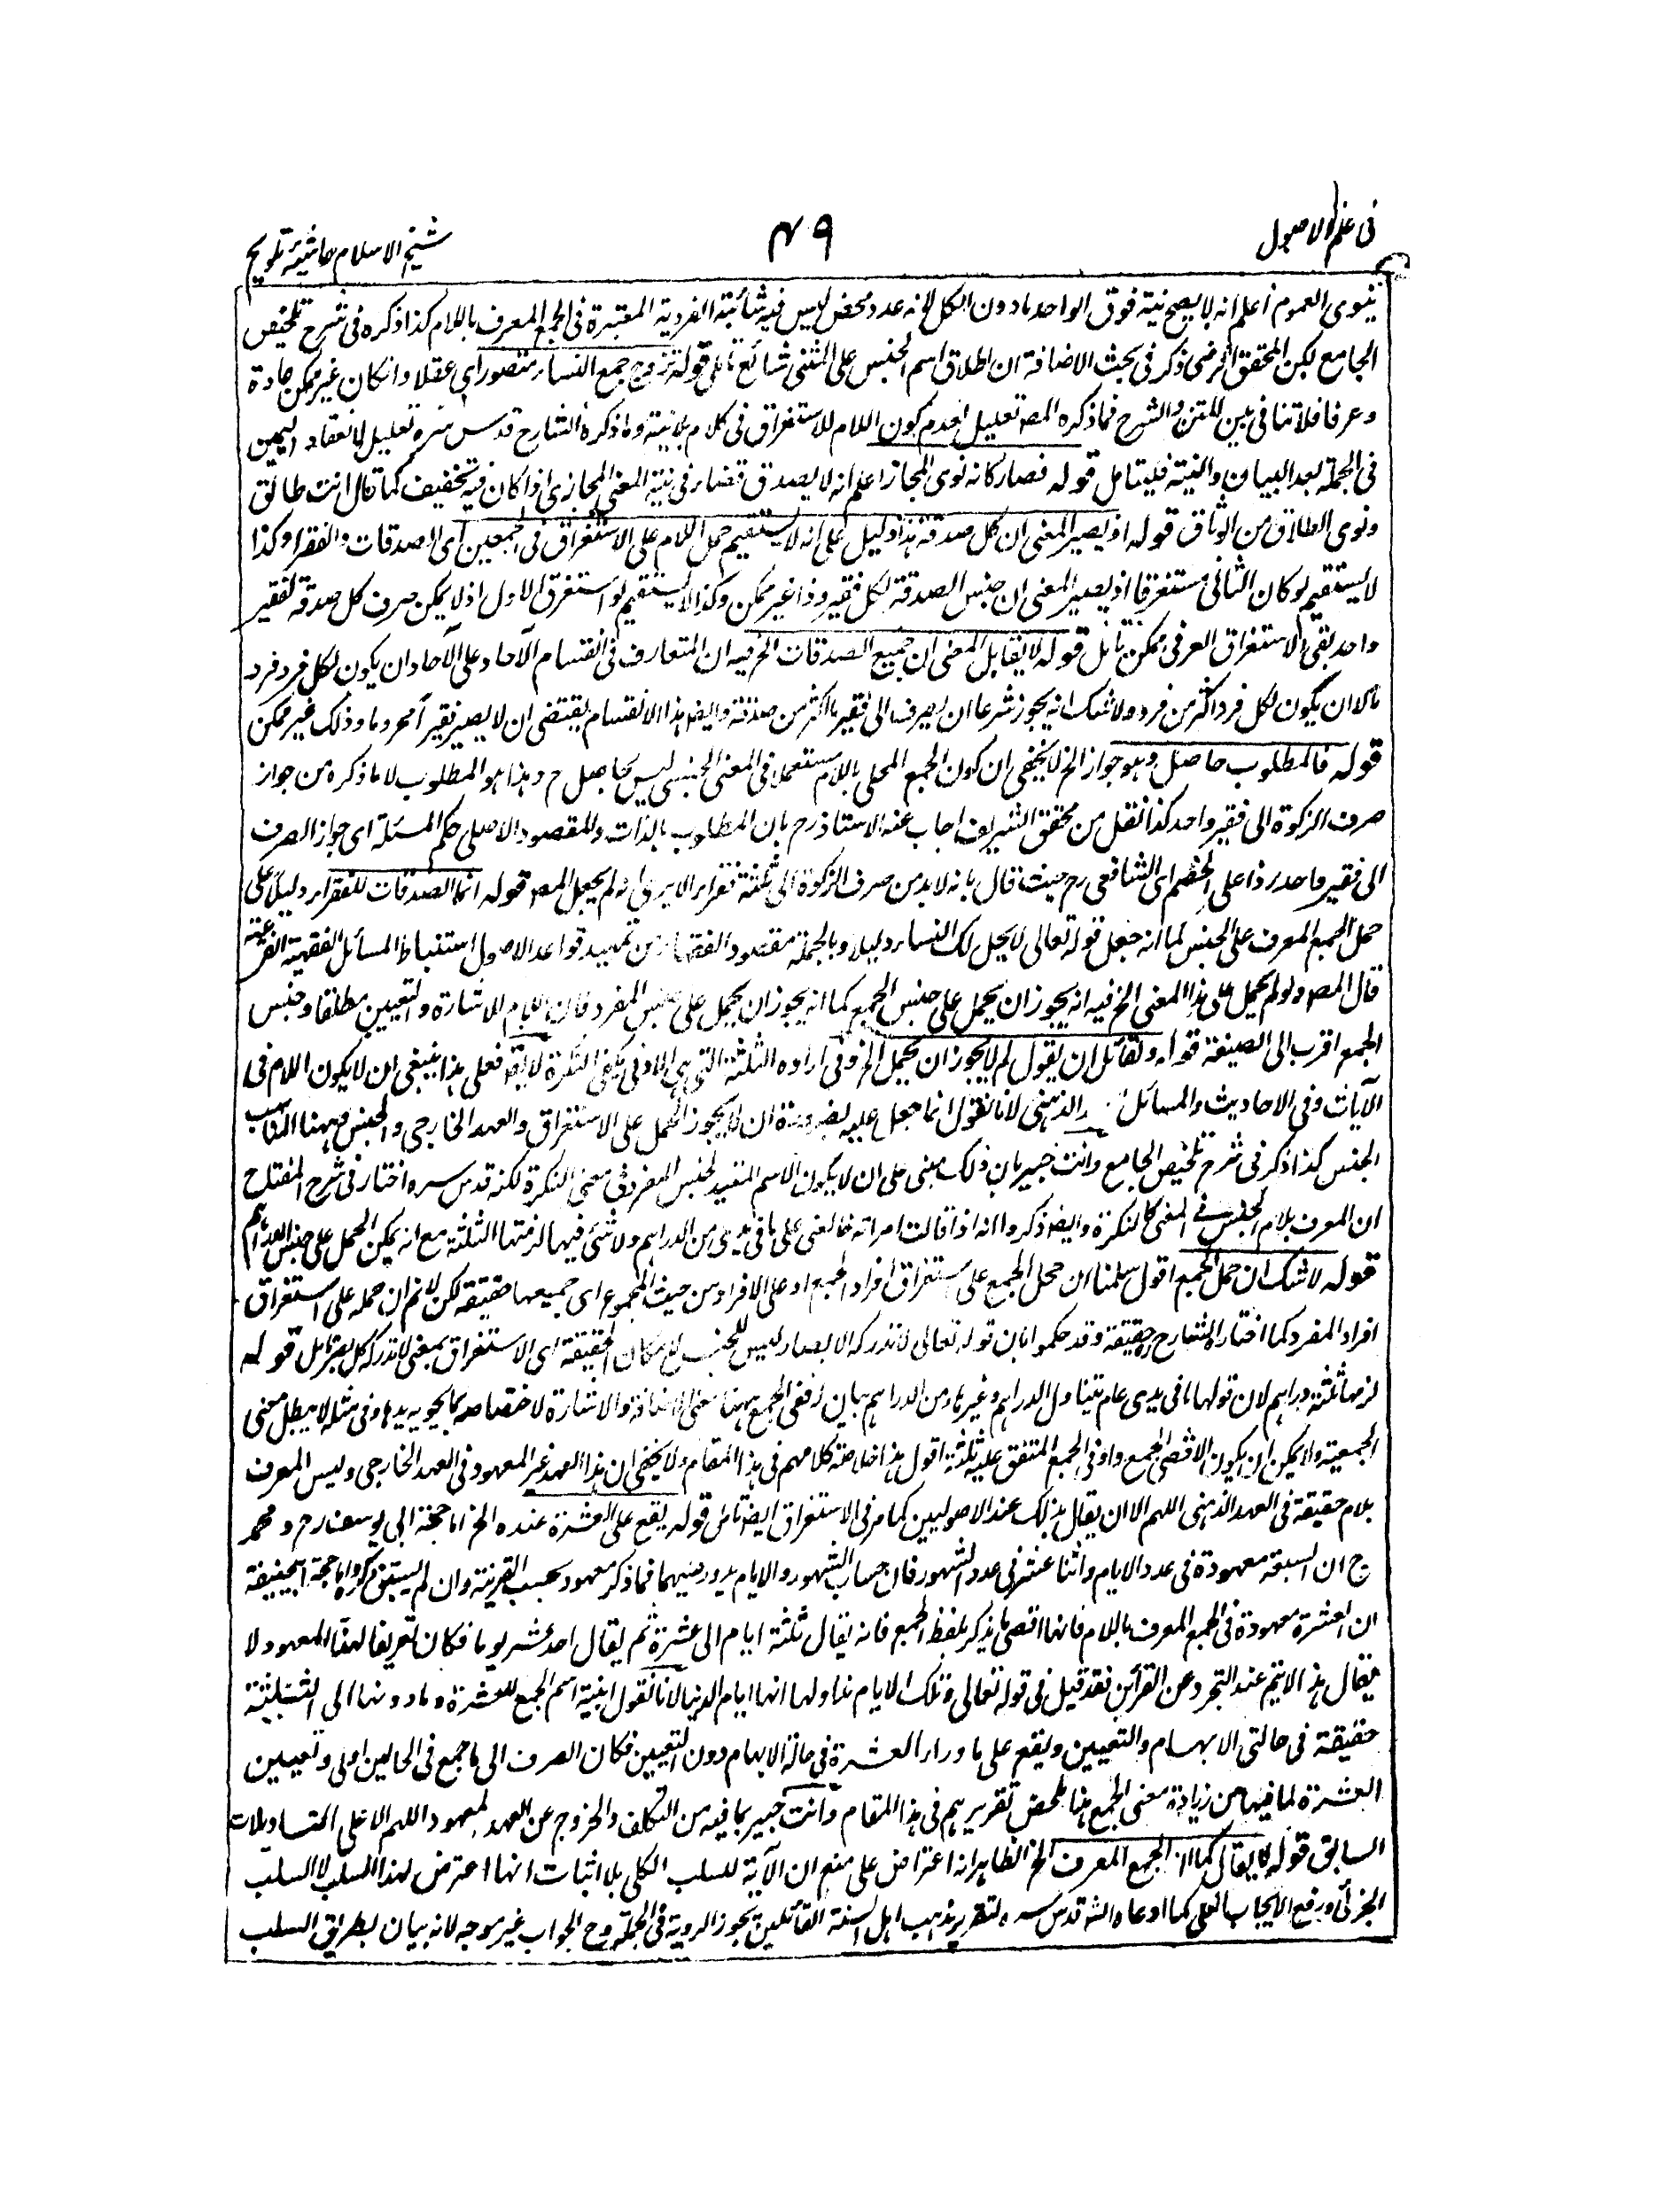 فى علم الاصول
٤٩
شيخ الاسلام حاشية تلويح
ينوى العموم اعلم انه لا يصح نية فوق الواحد ما دون الكل لانه عدد محض ليس فيه شائبة الفردية المعتبرة فى الجمع المعرف باللام كذا ذكره فى شرح تلخيص
الجامع لكن المحقق الرضى ذكر فى بحث الاضافة ان اطلاق اسم الجنس على المثنى شائع تامل قوله تزوج جمع النساء متصور اى عقلا وانكان غير ممكن عادة
وعرفا فلا تنافى بين المتن والشرح فما ذكره المصـ تعليل لعدم كون اللام للاستغراق فى كلام بلا نية وما ذكره الشارح قدس سره تعليل لانعقاد اليمين
فى الجملة بعد البيان والنية فليتامل قوله فصار كانه نوى المجاز اعلم انه لا يصدق قضاء فى نية المعنى المجازى اذا كان فيه تخفيف كما قال انت طالق
ونوى الطلاق من الوثاق قوله اذ يصير المعنى ان كل صدقة هذا دليل على انه لا يستقيم حمل اللام على الاستغراق فى الجمعين اى الصدقات والفقراء وكذا
لا يستقيم لو كان الثانى مستغرقا اذ يصير المعنى ان جنس الصدقة لكل فقير وذا غير ممكن وكذا لا يستقيم لو استغرق الاول اذ لا يمكن صرف كل صدقة لفقير
واحد بقى الاستغراق العرفى ممكن تامل قوله لا يقابل المعنى ان جميع الصدقات الخ فيه ان المتعارف فى انقسام الآحاد على الآحاد ان يكون لكل فرد فرد
لا ان يكون لكل فرد اكثر من فرد ولا شك انه يجوز شرعا ان يصرف الى فقير اكثر من صدقة وايضـ هذا الانقسام يقتضى ان لا يصير فقير آ محروما وذلك غير ممكن
قوله فالمطلوب حاصل وهو جواز الخ لا يخفى ان كون الجمع المحلى باللام مستعملا فى المعنى الجنسى ليس بحاصل ح وهذا هو المطلوب لا ما ذكره من جواز
صرف الزكوة الى فقير واحد كذا نقل من محقق الشريف اجاب عنه الاستاذ رح بان المطلوب بالذات والمقصود الاصلى حكم المسئلة اى جواز الصرف
الى فقير واحد ردا على الخصم اى الشافعى رح حيث قال بانه لا بد من صرف الزكوة الى ثلثة فقراء الا يرى انه لم يجعل المصـ قوله انما الصدقات للفقراء دليلا على
حمل الجمع المعرف على الجنس لما انه جعل قوله تعالى لا يحل لك النساء دليلا وبالجملة مقصود الفقهاء من تمهيد قواعد الاصول استنباط المسائل الفقهية الفرعية
قال المصـ ولو لم يحمل على هذا المعنى الخ فيه انه يجوز ان يحمل على جنس الجمع كما انه يجوز ان يحمل على جنس المفرد فان اللام للاشارة والتعيين مطلقا وجنس
الجمع اقرب الى الصيغة قوله ولقائل ان يقول لم لا يجوز ان يحمل الخ وفى ارادة الثلثة التى هى الادنى يكفى النكرة لا يقـ فعلى هذا ينبغى ان لا يكون اللام فى
الآيات وفى الاحاديث والمسائل الذهنى لانا نقول انما جعل عليه لضرورة ان لا يجوز الحمل على الاستغراق والعهد الخارجى والجنس وههنا المناسب
الجنس كذا ذكر فى شرح تلخيص الجامع وانت خبير بان ذلك مبنى على ان لا يكون الاسم المفيد لجنس المفرد فى معنى النكرة لكنه قدس سره اختار فى شرح المفتاح
ان المعرف بلام الجنس فى المعنى كالنكرة وايضـ ذكروا انه اذا قالت امراته خالعنى على ما فى يدى من الدراهم ولا شئ فيها لزمتها الثلثة مع انه يمكن الحمل على جنس الدراهم
قوله لا شك ان حمل الجمع اقول سلمنا ان حمل الجمع على استغراق افراد الجمع او على الافراد من حيث المجموع اى جميعها حقيقة لكن لا نم ان حمله على استغراق
افراد المفرد كما اختاره الشارح حقيقة وقد حكموا بان قوله تعالى لا تدركه الابصار ليس للجنس مع امكان الحقيقة اى الاستغراق بمعنى لا تدركه كل بصر تامل قوله
لزمها ثلثة دراهم لان قولها ما فى يدى عام يتناول الدراهم وغيرها ومن الدراهم بيان ففى الجمع ههنا معنى الاضافة والاشارة لاختصاصه بما يحويه يدها وفى مثله لا يبطل معنى
الجمعية ولا يمكن ان يكون الاقصى الجمع وادنى الجمع المتفق عليه ثلثة اقول هذا خلاصة كلامهم فى هذا المقام ولا يخفى ان هذا العهد غير المعهود فى العهد الخارجى وليس المعرف
بلام حقيقة فى العهد الذهنى اللهم الا ان يقال بذلك عند الاصوليين كما مر فى الاستغراق ايضـ تامل قوله يقع على العشرة عنده الخ اما حجة ابى يوسف رح ومحمد
رح ان السبعة معهودة فى عدد الايام واثنا عشر فى عدد الشهور فان حساب الشهور والايام يدور عليهما فما ذكر معهود بحسب القرينة وان لم يسبق ذكره واما حجة ابيحنيفة
ان العشرة معهودة فى الجمع المعرف باللام فانها اقصى ما يذكر بلفظ الجمع فانه يقال ثلثة ايام الى عشرة ثم يقال احد عشر يوما فكان تعريفا لهذا المعهود لا
يقال هذا لا يتم عند التجرد عن القرائن فقد قيل فى قوله تعالى وتلك الايام نداولها انها ايام الدنيا لانا نقول ابنية اسم الجمع للعشرة وما دونها الى الثلثة
حقيقة فى حالتى الابهام والتعيين ويقع على ما وراء العشرة فى حالة الابهام دون التعيين فكان الصرف الى ما جمع فى الحالين اولى وتعيين
العشرة لما فيها من زيادة معنى الجمع هذا ملخص تقريرهم فى هذا المقام وانت خبير بما فيه من التكلف والخروج عن العهد لمعهود اللهم الا على التاويلات
السابق قوله لا يقال كما ان الجمع المعرف الخ الظاهر انه اعتراض على منع ان الآية للسلب الكلى بلا اثبات انها اعترض لهذا السلب لا السلب
الجزئى ورفع الايجاب الكلى كما ادعاه الشـ قدس سره لتقرير مذهب اهل السنة القائلين بجوز الروية فى الجملة وح الجواب غير موجه لانه بيان لطريق السلب